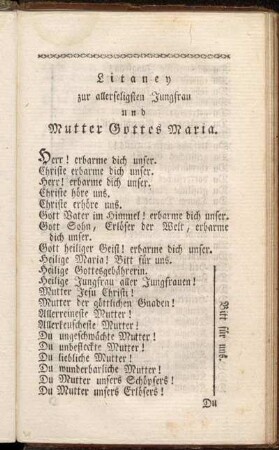 Litaney
zur allerseligsten Jungfrau
und
Mutter Gottes Maria.
Herr! erbarme dich unser.
Christe erbarme dich unser.
Herr! erbarme dich unser.
Christe höre uns.
Christe erhöre uns.
Gott Vater im Himmel! erbarme dich unser.
Gott Sohn, Erlöser der Welt, erbarme
dich unser.
Gott heiliger Geist! erbarme dich unser.
Heilige Maria! Bitt für uns.
Heilige Gottesgebährerin.
Heilige Jungfrau aller Jungfrauen!
Mutter Jesu Christi!
Mutter der göttlichen Gnaden!
Allerreineste Mutter!
Allerkeuscheste Mutter!
Du ungeschwächte Mutter!
Du unbefleckte Mutter!
Du liebliche Mutter!
Du wunderbarliche Mutter!
Du Mutter unsers Schöpfers!
Du Mutter unsers Erlösers!
Bitt für uns.
Du